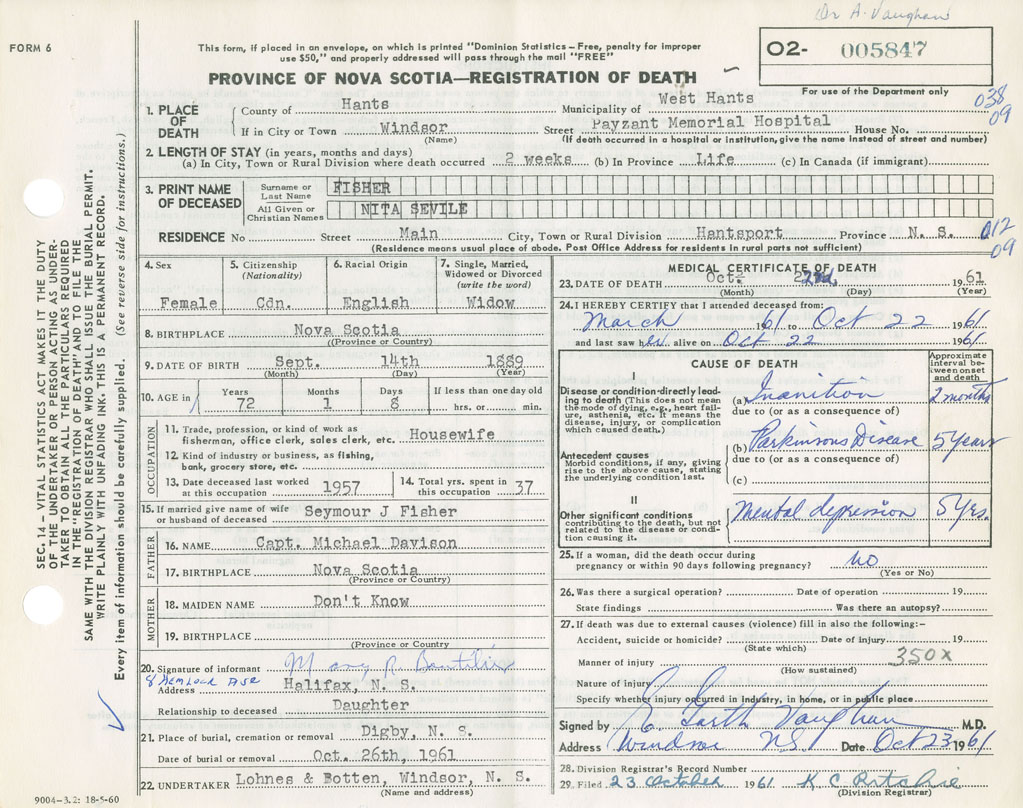 Dr A. Vaughan
FORM 6
This form, if placed in an envelope, on which is printed "Dominion Statistics – Free, penalty for improper
use $50," and properly addressed will pass through the mail "FREE"
O2- 005847
PROVINCE OF NOVA SCOTIA—REGISTRATION OF DEATH
For use of the Department only
038
09
1. PLACE OF DEATH
County of Hants Municipality of West Hants
If in City or Town Windsor Street Payzant Memorial Hospital House No.
(Name) (If death occurred in a hospital or institution, give the name instead of street and number)
2. LENGTH OF STAY (in years, months and days)
(a) In City, Town or Rural Division where death occurred 2 weeks (b) In Province Life (c) In Canada (if immigrant)
3. PRINT NAME OF DECEASED
Surname or Last Name FISHER
All Given or Christian Names NITA SEVILE
RESIDENCE No Street Main City, Town or Rural Division Hantsport Province N. S.
(Residence means usual place of abode. Post Office Address for residents in rural parts not sufficient)
012
09
4. Sex
Female
5. Citizenship
(Nationality)
Cdn.
6. Racial Origin
English
7. Single, Married,
Widowed or Divorced
(write the word)
Widow
8. BIRTHPLACE Nova Scotia
(Province or Country)
9. DATE OF BIRTH Sept. 14th 1889
(Month) (Day) (Year)
10. AGE in
Years Months Days If less than one day old
72 1 8 hrs. or min.
OCCUPATION
11. Trade, profession, or kind of work as
fisherman, office clerk, sales clerk, etc. Housewife
12. Kind of industry or business, as fishing,
bank, grocery store, etc.
13. Date deceased last worked
at this occupation 1957
14. Total yrs. spent in
this occupation 37
15. If married give name of wife
or husband of deceased Seymour J Fisher
FATHER
16. NAME Capt. Michael Davison
17. BIRTHPLACE Nova Scotia
(Province or Country)
MOTHER
18. MAIDEN NAME Don't Know
19. BIRTHPLACE
(Province or Country)
20. Signature of informant Mary R
8 Hemlock Ave
Address Halifax, N. S.
Relationship to deceased Daughter
21. Place of burial, cremation or removal Digby, N. S.
Date of burial or removal Oct. 26th, 1961
22. UNDERTAKER Lohnes & Botten, Windsor, N. S.
(Name and address)
MEDICAL CERTIFICATE OF DEATH
23. DATE OF DEATH Oct. 22nd 1961
(Month) (Day) (Year)
24. I HEREBY CERTIFY that I attended deceased from:
March 1961 to Oct 22 1961
and last saw her alive on Oct 22 1961
CAUSE OF DEATH
Approximate
interval be-
tween onset
and death
I
Disease or condition directly lead-
ing to death (This does not mean
the mode of dying, e.g., heart fail-
ure, asthenia, etc. It means the
disease, injury, or complication
which caused death.)
(a) Inanition 2 months
due to (or as a consequence of)
(b) Parkinsons Disease 5 Years
Antecedent causes
Morbid conditions, if any, giving
rise to the above cause, stating
the underlying condition last.
due to (or as a consequence of)
(c)
II
Other significant conditions
contributing to the death, but not
related to the disease or condi-
tion causing it.
Mental depression 5 Yrs.
25. If a woman, did the death occur during
pregnancy or within 90 days following pregnancy? No
(Yes or No)
26. Was there a surgical operation? Date of operation 19
State findings Was there an autopsy?
27. If death was due to external causes (violence) fill in also the following:-
Accident, suicide or homicide? Date of injury 19
(State which)
350X
Manner of injury
(How sustained)
Nature of injury
Specify whether injury occurred in Industry, in home, or in public place
Signed by E. Garth Vaughan M.D.
Address Windsor NS Date Oct 23 1961
28. Division Registrar's Record Number
29. Filed 23 October 1961 K C Ritchie
(Division Registrar)
SEC. 14 – VITAL STATISTICS ACT MAKES IT THE DUTY
OF THE UNDERTAKER OR PERSON ACTING AS UNDER-
TAKER TO OBTAIN ALL THE PARTICULARS REQUIRED
IN THE "REGISTRATION OF DEATH" AND TO FILE THE
SAME WITH THE DIVISION REGISTRAR WHO SHALL ISSUE THE BURIAL PERMIT.
WRITE PLAINLY WITH UNFADING INK. THIS IS A PERMANENT RECORD.
Every item of information should be carefully supplied. (See reverse side for instructions.)
9004–3.2: 18-5-60